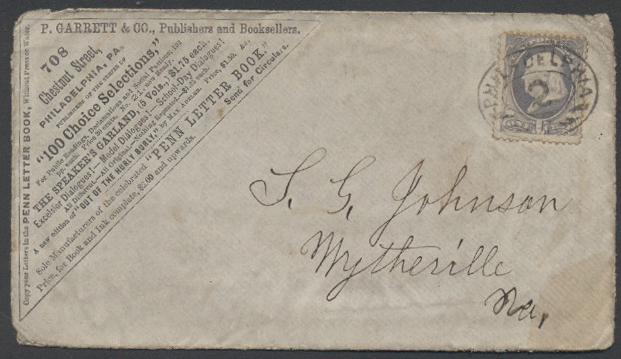 P. GARRETT & CO., Publishers and Booksellers.
708
Chestnut Street,
PHILADELPHIA, PA.
PUBLISHERS OF THE SERIES OF
"100 Choice Selections,"
For Public Readings, Declamations and Social Pastime, 192
THE SPEAKER'S GARLAND, (5 Vols.,) $1.75 each.
Excelsior Dialogues!—Model Dialogues!—School-Day Dialogues!
All Different.—All Original.—Nothing Reprinted.—
A new edition of "OUT OF THE HURLY BURLY," by MAX ADELER. Price,
Sole Manufacturers of the celebrated "PENN LETTER BOOK."
Price, for Book and Ink complete, $2.00 and upwards. Send for Circulars.
Copy your Letters in the PENN LETTER BOOK, Without Press or Water.
PHILADELPHIA
2
S. G. Johnson
Wytheville
Va,